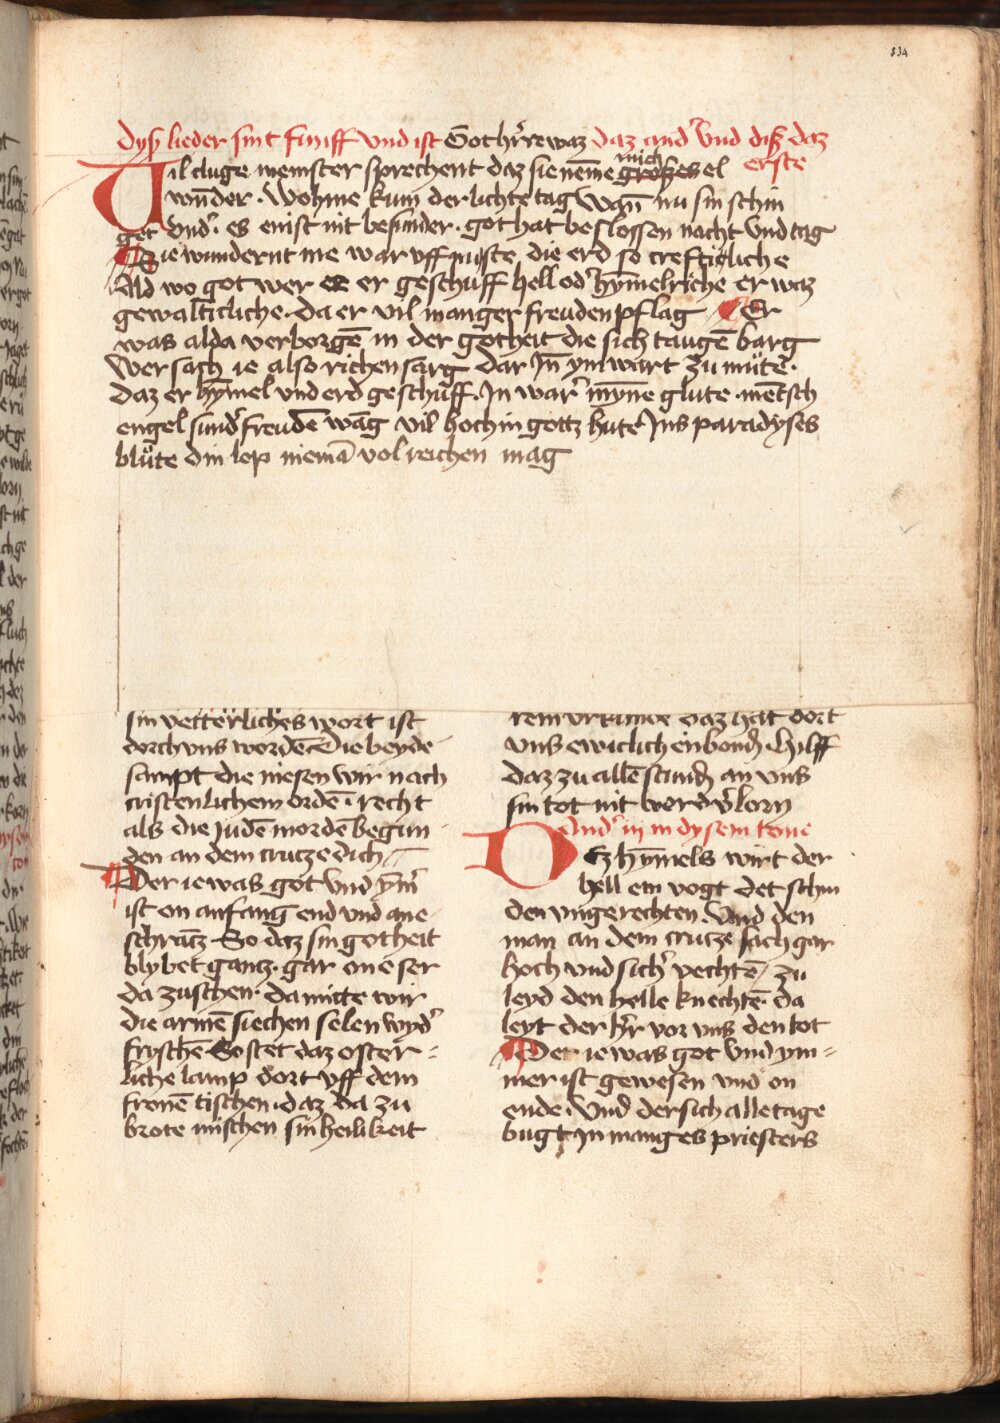 134
Dysz lieder sint funff vnd ist Got hr̄re waz daz and' vnd disz daz
erste
Vil cluge meinster sprechent daz sie neme mich groszes el
wūder . Wohine kum der liechte tag wan̄ nu sin schin
get vnd' . es enist nit besunder . got hat beslossen nacht vnd tag
Sie wundernt me war vff muste die erd so crefteicliche
Ald wo got wer ee er geschuff hell od' hȳmelriche er waz
gewalticliche . da er vil manger freuden pflag Er
was alda verborgē in der gotheit die sich taugē barg
Wer sach ie also richen sarg dar Jn̄ ym wart zu mute .
daz er hȳmel vnd erd geschuff . Jn war' mȳne glute . mētsch
engel sund' freudē wāg vil hoch in gottz hute Jns paradyses
blůte din lop niemā vol reichen mag
sin vetterliches wort ist
dorch vns wordē Die beyde
sampt die niesen wir nach
cristenlichem orden . recht
als die Judē mordē begun
den an dem crutze dich
Der ie was got vnd ym̄'
ist on anfang end vnd ane
schrātz . So daz sin gotheit
blybet gantz . gar one ser
da zuschen . da mitte wir
die armē siechen selen wyd'
fryschē So stet daz oster =
liche lamp dort vff dem
fronē tischen . daz da zu
brote mischen sin heilikeit
rem vrkunde daz hat dort
vns ewiclich enbond . hilff
daz zu allē stund an vns
sin tot nit werd v'lorn
And' iij in dysem tone
Dez hȳmels wirt der
hell ein vogt det schin
den vngerechten . Vnd den
man an dem crutze sach gar
hoch vnd sich' vechtē / zu
leyd den helle knechtē . da
leyt der hr̄ vor vns den tot
Der ie was got vnd ym =
mer ist gewesen vnd on
ende . Vnd der sich alle tage
bugt Jn manges priesters